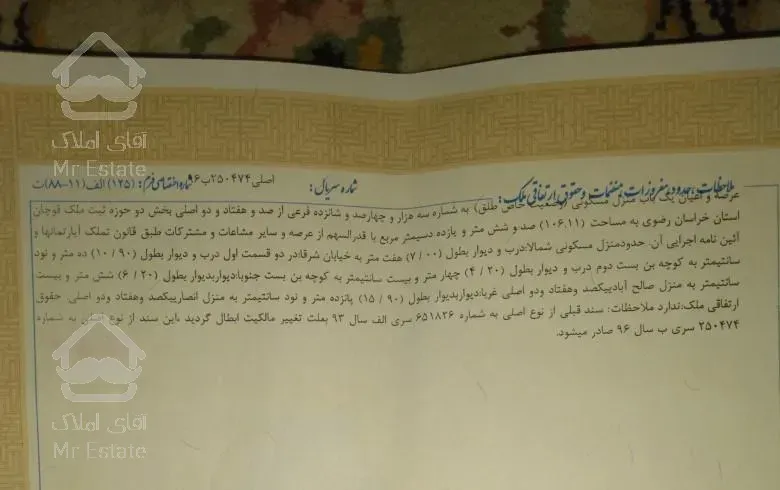 آقای املاک
Mr Estate
ملاحظات، حدود، مفروزات، منضمات و حقوق ارتفاقی ملک: شماره سریال: اصلی۲۵۰۴۷۴ب۹۶ شماره اختصاصی فرم: (۱۲۵) الف(۱۱-۸۸)ت
عرصه و اعیان یک باب منزل مسکونی (وضعیت خاص طلق) به شماره سه هزار و چهارصد و شانزده فرعی از صد و هفتاد و دو اصلی بخش دو حوزه ثبت ملک قوچان
استان خراسان رضوی به مساحت (۱۰۶,۱۱) صد و شش متر و یازده دسیمتر مربع با قدرالسهم از عرصه و سایر مشاعات و مشترکات طبق قانون تملک آپارتمانها و
آئین نامه اجرایی آن. حدودمنزل مسکونی شمالا:درب و دیوار بطول (۰۰ / ۷) هفت متر به خیابان شرقادر دو قسمت اول درب و دیوار بطول (۹۰ / ۱۰) ده متر و نود
سانتیمتر به کوچه بن بست دوم درب و دیوار بطول (۲۰ / ۴) چهار متر و بیست سانتیمتر به کوچه بن بست جنوبا:دیواربدیوار بطول (۲۰ / ۶) شش متر و بیست
سانتیمتر به منزل صالح آبادییکصد وهفتاد ودو اصلی غربا:دیواربدیوار بطول (۹۰ / ۱۵) پانزده متر و نود سانتیمتر به منزل انصارییکصد وهفتاد ودو اصلی حقوق
ارتفاقی ملک:ندارد ملاحظات: سند قبلی از نوع اصلی به شماره ۶۵۱۸۲۶ سری الف سال ۹۳ بعلت تغییر مالکیت ابطال گردید ،این سند از نوع اصلی به شماره
۲۵۰۴۷۴ سری ب سال ۹۶ صادر میشود.
آقای املاک
Mr Estate